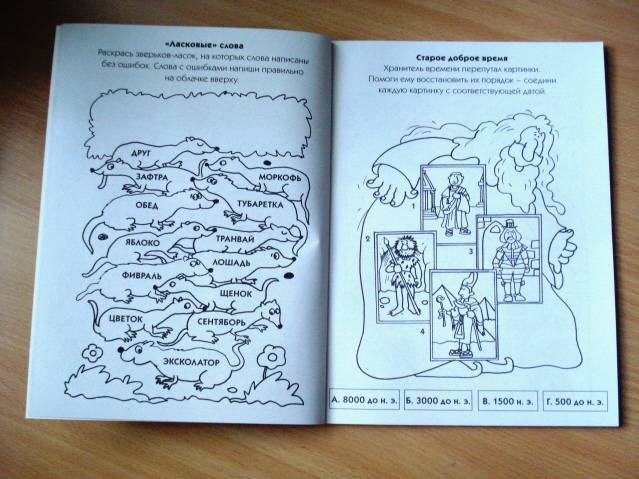 «Ласковые» слова
Раскрась зверьков-ласок, на которых слова написаны
без ошибок. Слова с ошибками напиши правильно
на облачке вверху.
ДРУГ
ЗАФТРА
МОРКОФЬ
ОБЕД
ТУБАРЕТКА
ЯБЛОКО
ТРАНВАЙ
ЛОШАДЬ
ФИВРАЛЬ
ЩЕНОК
ЦВЕТОК
СЕНТЯБОРЬ
ЭКСКОЛАТОР
Старое доброе время
Хранитель времени перепутал картинки.
Помоги ему восстановить их порядок – соедини
каждую картинку с соответствующей датой.
2
3
4
А. 8000 до н. э.
Б. 3000 до н. э.
В. 1500 н. э.
Г. 500 до н. э.